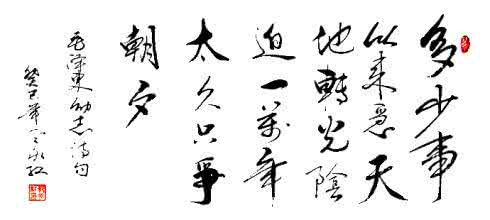 多少事
从来急天
地轉光陰
迫一萬年
太久只爭
朝夕
毛澤東励志诗句
癸巳年